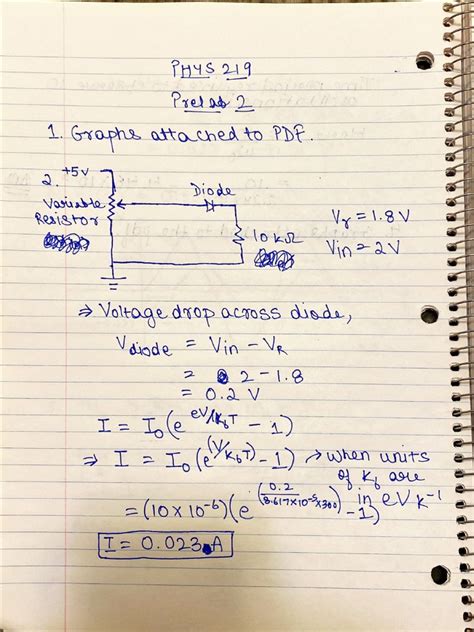 PHYS 219
Prelab 2
1. Graphs attached to PDF.
2. +5V
Diode
Variable
Resistor
10 kΩ
V_r = 1.8 V
V_in = 2V
⇒ Voltage drop across diode,
V_diode = V_in − V_R
= 2 − 1.8
= 0.2 V
I = I_0 (e^{eV/k_bT} − 1)
⇒ I = I_0 (e^{(V/k_bT)} − 1) → when units of k_b are in eV K^{-1}
= (10 × 10^{-6}) (e^{(0.2/8.617×10^{-5}×300)} − 1)
I = 0.023 A